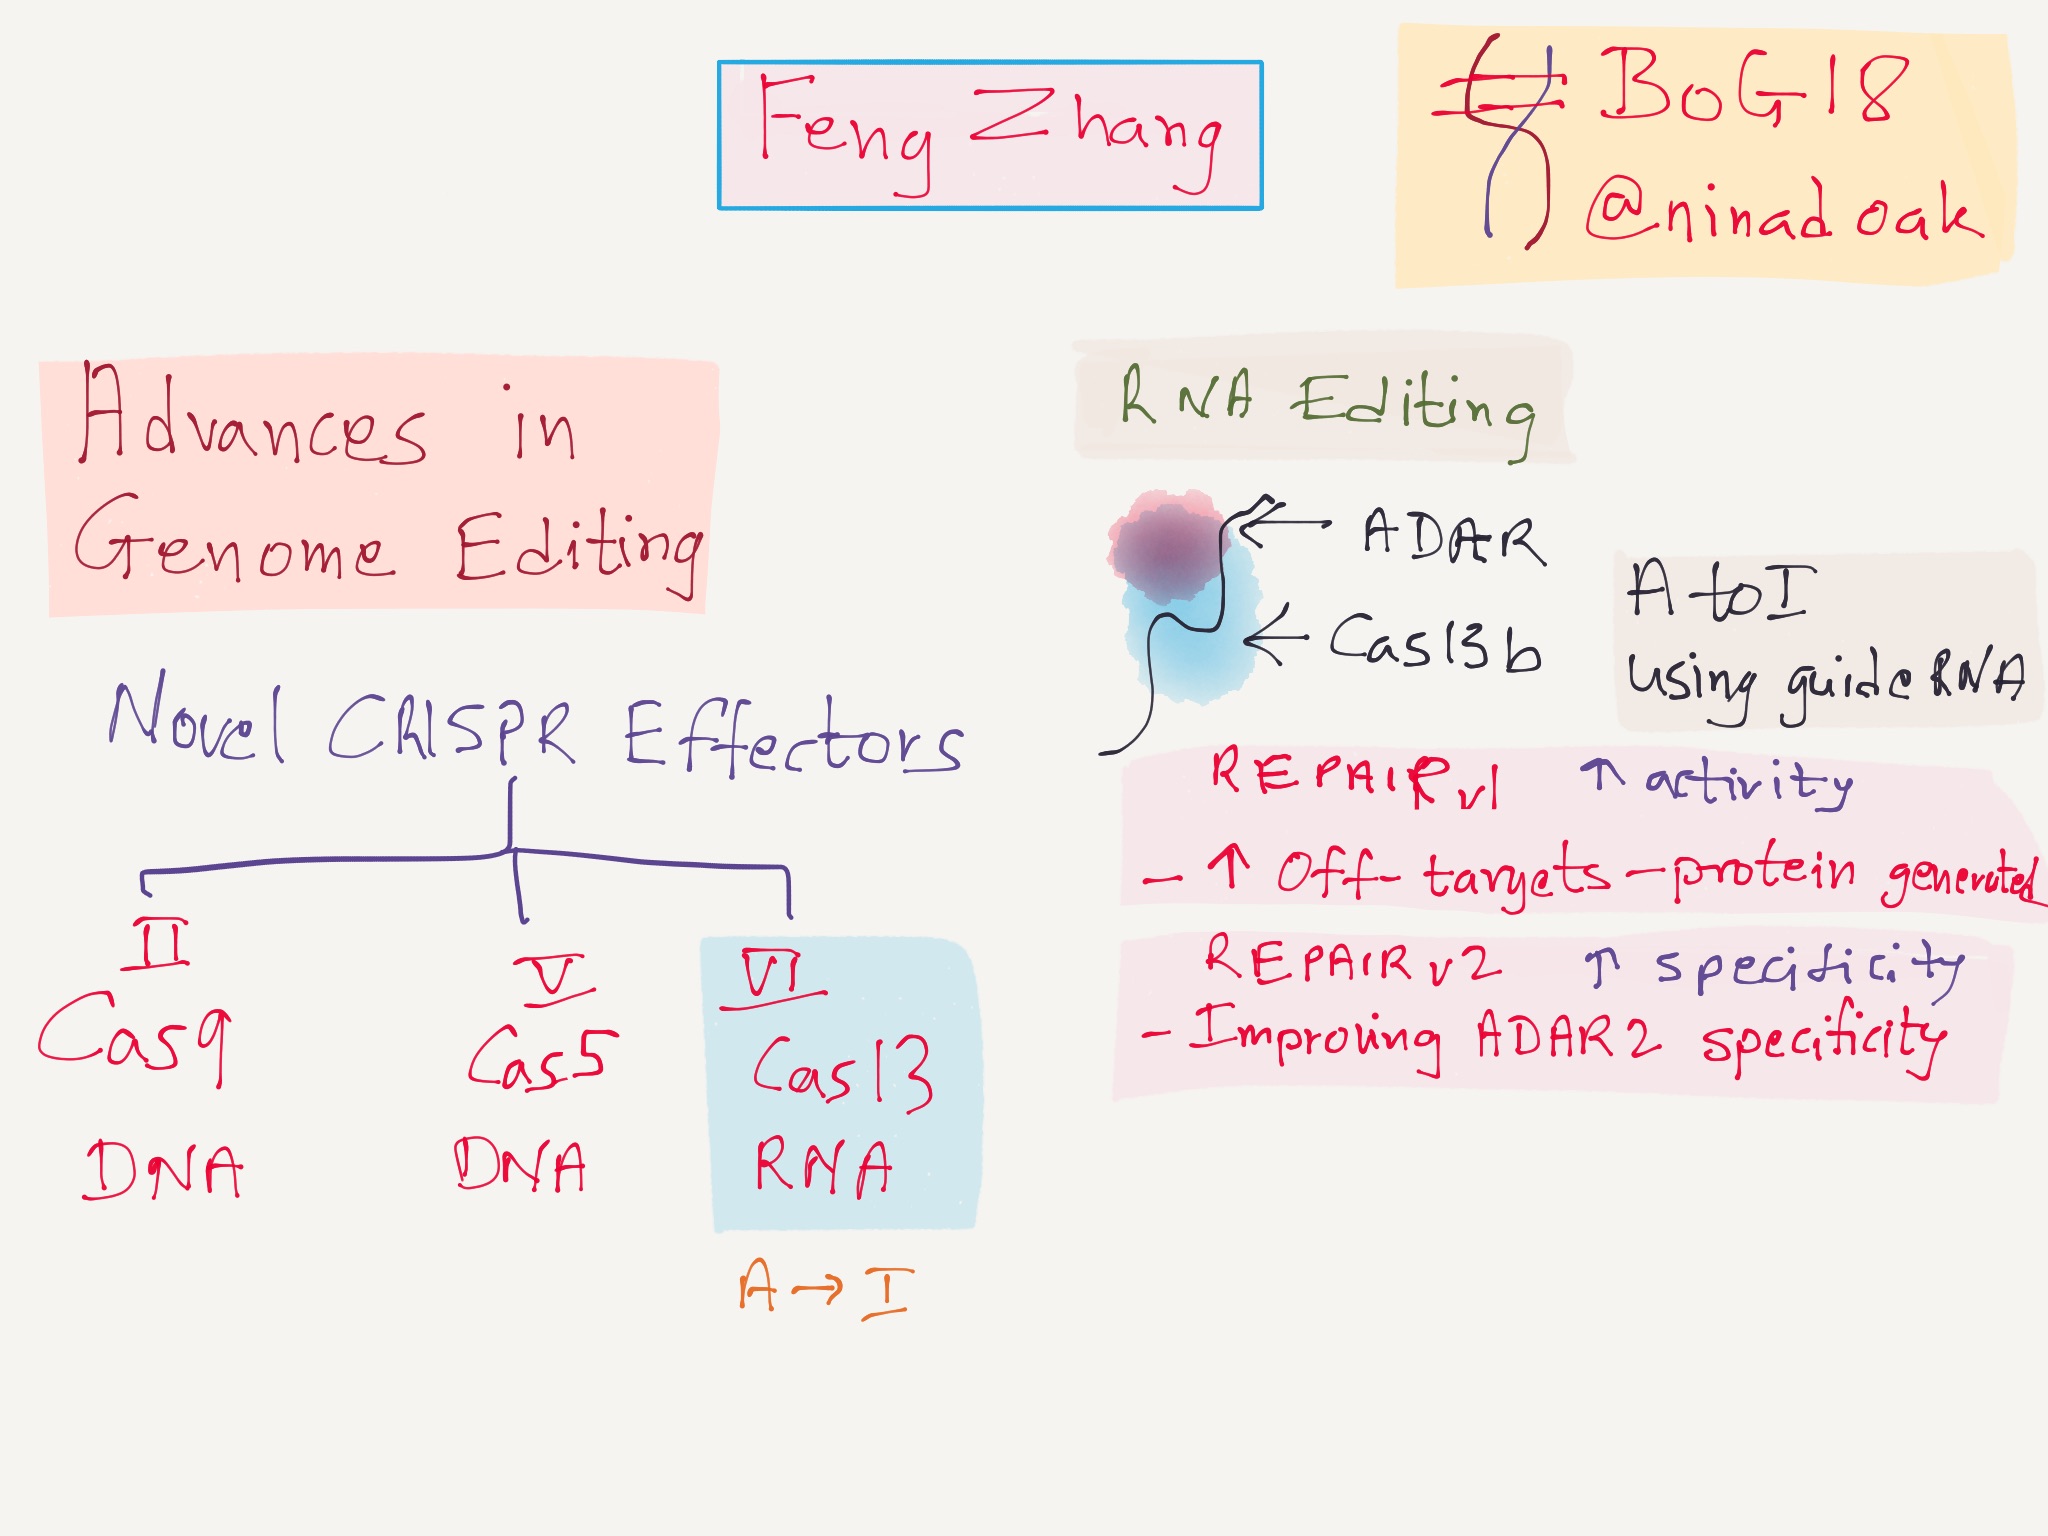 Feng Zhang
#BoG18
@ninadoak
Advances in
Genome Editing
Novel CRISPR Effectors
II
Cas9
DNA
V
Cas5
DNA
VI
Cas13
RNA
A → I
RNA Editing
← ADAR
← Cas13b
A to I
using guide RNA
REPAIRv1 ↑ activity
- ↑ Off-targets - protein generated
REPAIRv2 ↑ specificity
- Improving ADAR2 specificity